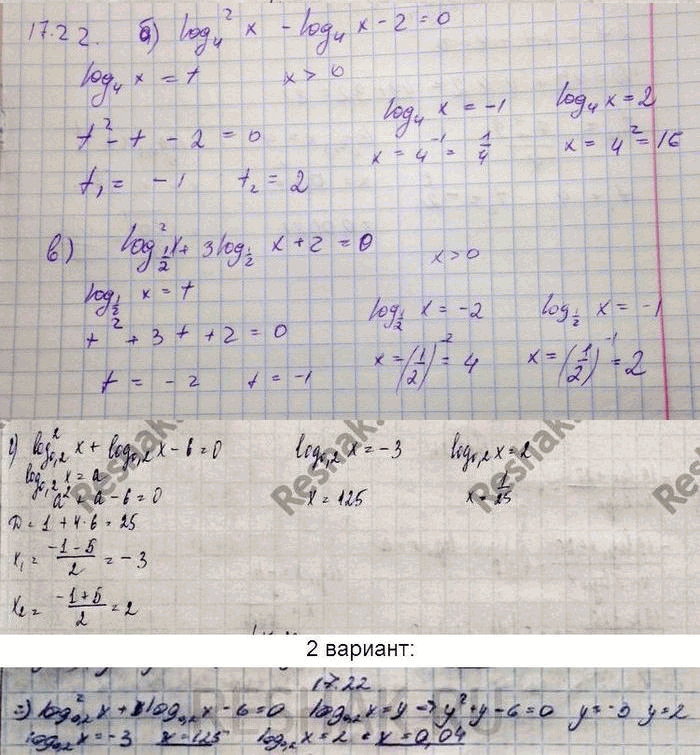 17.22. б) log₄² x - log₄ x - 2 = 0
log₄ x = t x > 0
t² - t - 2 = 0
t₁ = -1 t₂ = 2
log₄ x = -1 log₄ x = 2
x = 4⁻¹ = 1/4 x = 4² = 16
в) log²_{1/2} x + 3 log_{1/2} x + 2 = 0 x > 0
log_{1/2} x = t
t² + 3t + 2 = 0
t = -2 t = -1
log_{1/2} x = -2 log_{1/2} x = -1
x = (1/2)⁻² = 4 x = (1/2)⁻¹ = 2
г) log²_{0,2} x + log_{0,2} x - 6 = 0
log_{0,2} x = a
a² + a - 6 = 0
D = 1 + 4·6 = 25
x₁ = (-1-5)/2 = -3
x₂ = (-1+5)/2 = 2
log_{0,2} x = -3 log_{0,2} x = 2
x = 125 x = 1/25
Reshak.ru
2 вариант:
17.22
log²_{0,2} x + log_{0,2} x - 6 = 0 log_{0,2} x = y → y² + y - 6 = 0 y = -3 y = 2
log_{0,2} x = -3 x = 125 log_{0,2} x = 2 x = 0,04
RESHAK.RU